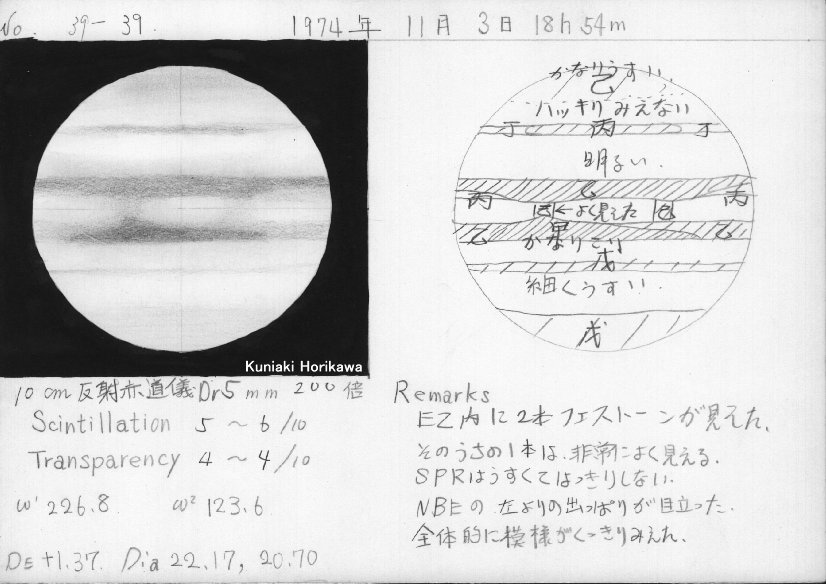 No. 39-39. 1974年 11月 3日 18h 54m
かなりうすい.
己
ハッキリみえない
丁 丙 丁
明るい.
乙
丙 丙
←よく見えた
乙 乙
かなりこい
戊
細くうすい.
戊
Kuniaki Horikawa
10cm反射赤道儀 Or5mm 200倍
Scintillation 5～6/10
Transparency 4～4/10
ω¹ 226.8 ω² 123.6
DE +1.37. Dia 22.17, 20.70
Remarks
EZ内に2本フェストーンが見えた.
そのうちの1本は、非常によく見える.
SPRはうすくてはっきりしない.
NBEの左よりの出っぱりが目立った.
全体的に模様がくっきりみえた.